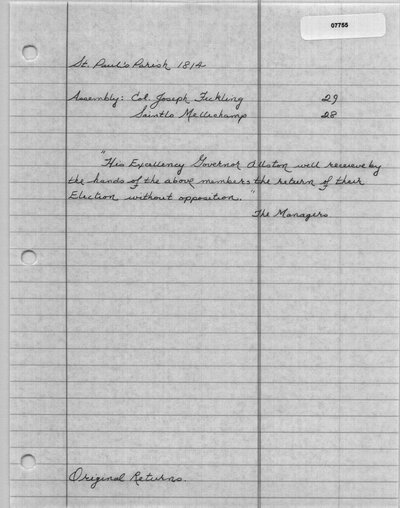 07755
St. Paul's Parish 1814
Assembly: Col. Joseph Fickling 29
Saintlo Mellichamp 28
"His Excellency Governor Allston will receieve by
the hands of the above members the return of their
Election without opposition."
The Managers
Original Returns.